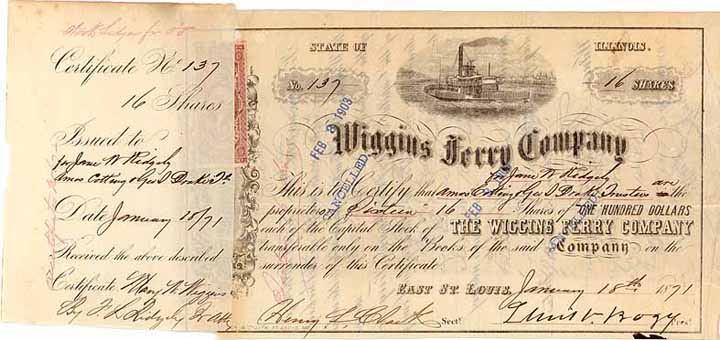 Stock Ledger fo 50
Certificate No 137
16 Shares
Issued to
for Jane W Ridgely
Amos Cotting & Geo S Drake Trs
Date January 18/71
Received the above described
Certificate Mary W Wiggins
By F. L. Ridgely Jr Atty
STATE OF ILLINOIS.
No. 137
16 SHARES
Wiggins Ferry Company
for Jane W Ridgely
This is to Certify that Amos Cotting & Geo S Drake Trustees are the
proprietors Sixteen 16 Shares of ONE HUNDRED DOLLARS
each of the Capital Stock of THE WIGGINS FERRY COMPANY
transferable only on the Books of the said Company on the
surrender of this Certificate
EAST ST. LOUIS, January 18th 1871
Henry L Clark Sect.
Lewis V. Bogy Pres.
CANCELLED
FEB 1903
FEB